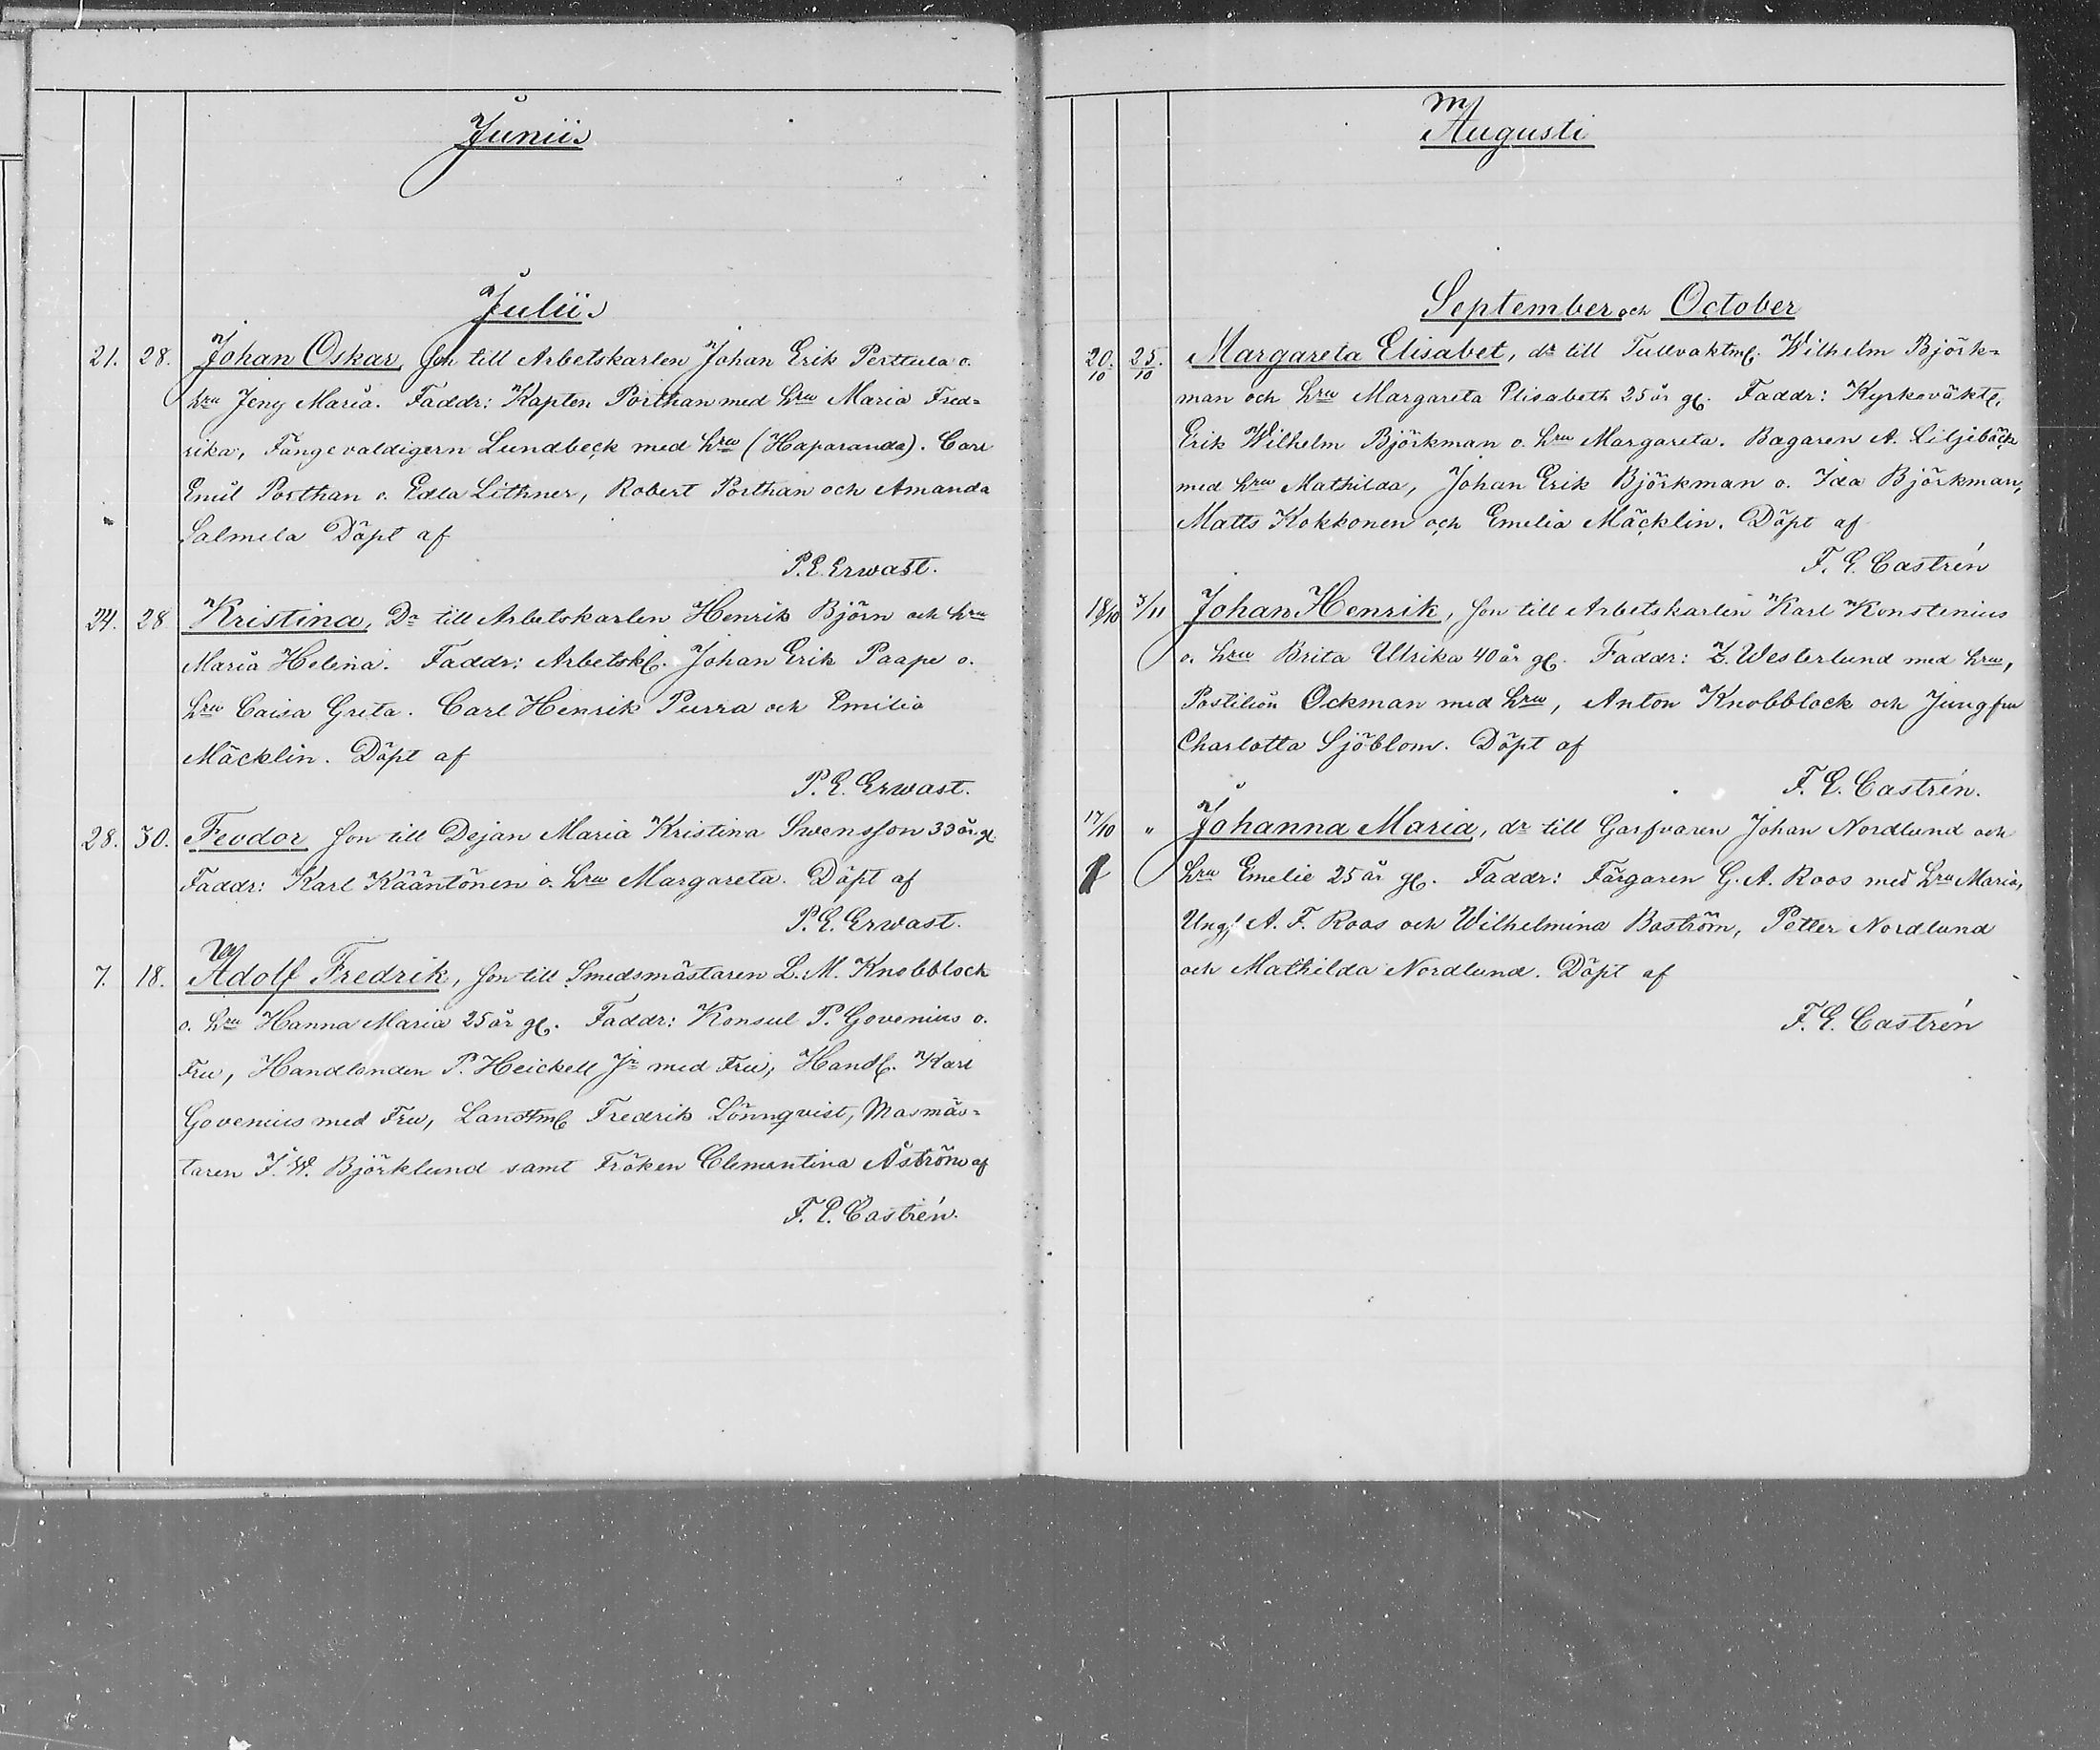 Junii
Julii
21. 28. Johan Oskar, Son till Arbetskarlen Johan Erik Perttula o.
hru Jeny Maria. Faddr: Kapten Porthan med hru Maria Fred-
rika, Fångevaldigern Lundbeck med hru (Haparanda). Carl
Emil Porthan o. Edla Lithner, Robert Porthan och Amanda
Salmela Döpt af
P. E. Erwast.
24. 28 Kristina, Dr till Arbetskarlen Henrik Björn och hru
Maria Helena. Faddr: Arbetskl. Johan Erik Paape o.
hru Caisa Greta. Carl Henrik Purra och Emilia
Mäcklin. Döpt af
P. E. Erwast.
28. 30. Feodor Son till Dejan Maria Kristina Swensson 33 år gl.
Faddr: Karl Kääntönen o. hru Margareta. Döpt af
P. E. Erwast.
7. 18. Adolf Fredrik, Son till Smedsmästaren L. M. Knobbloch
o. hru Hanna Maria 25 år gl. Faddr: Konsul P. Govenius o.
Fru, Handlanden P. Heickell Jr med Fru, Handl. Karl
Govenius med Fru, Landtm Fredrik Lönnqvist, Masmäs-
taren J. W. Björklund samt Fröken Clementina Åström af
F. E. Castrén.
Augusti
September och October
20/10 25/10. Margareta Elisabet, dr till Tullvaktm. Wilhelm Björk-
man och hru Margareta Elisabeth 25 år gl. Faddr: Kyrkeväkt.
Erik Wilhelm Björkman o. hru Margareta. Bagaren A. Liljebäck
med hru Mathilda, Johan Erik Björkman o. Ida Björkman,
Matts Kokkonen och Emelia Mäcklin. Döpt af
F. E. Castrén
18/10 3/11 Johan Henrik, Son till Arbetskarlen Karl Konstenius
o. hru Brita Ulrika 40 år gl. Faddr: Z. Westerlund med hru,
Postilion Ockman med hru, Anton Knobblock och Jungfru
Charlotta Sjöblom. Döpt af
F. E. Castrén.
17/10 " Johanna Maria, dr till Garfvaren Johan Nordlund och
hru Emelie 25 år gl. Faddr: Färgaren G. A. Roos med hru Maria,
Ungl A. F. Roos och Wilhelmina Boström, Petter Nordlund
och Mathilda Nordlund. Döpt af
F. E. Castrén